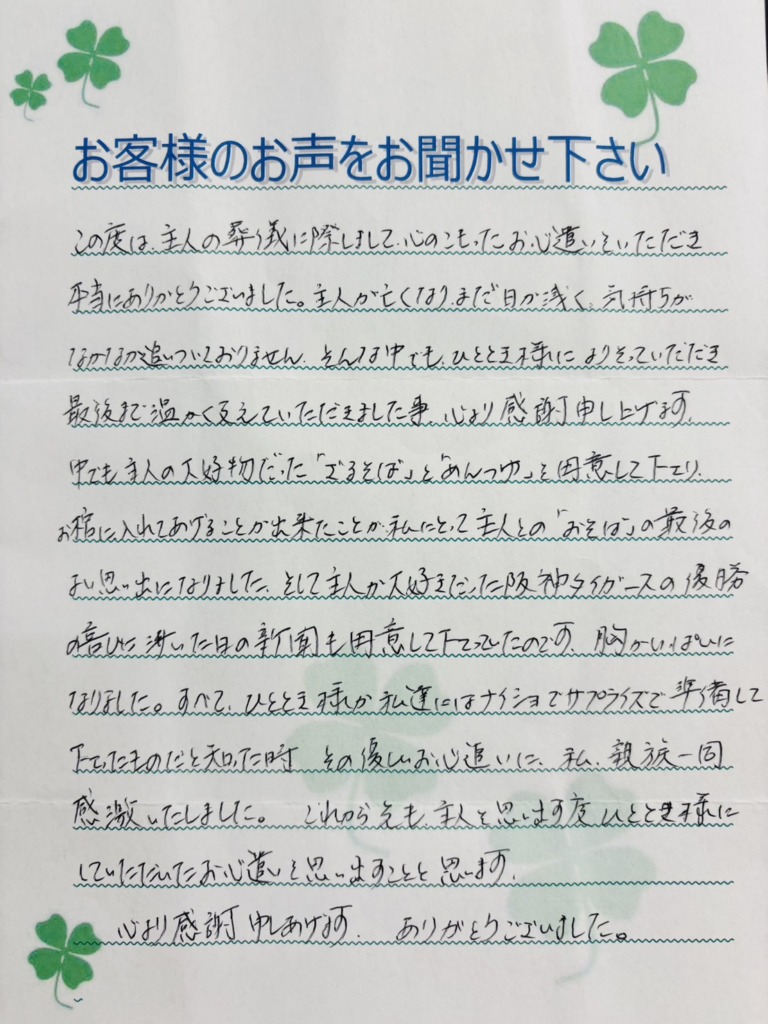 お客様のお声をお聞かせ下さい
この度は、主人の葬儀に際しまして、心のこもったお心遣いをいただき
本当にありがとうございました。主人が亡くなり、まだ日が浅く、気持ちが
なかなか追いついておりません。そんな中でも、ひととき様によりそっていただき
最後まで温かく支えていただきました事、心より感謝申し上げます。
中でも主人の大好物だった「ざるそば」と「めんつゆ」を用意して下さり、
お棺に入れてあげることが出来たことが、私にとって主人との「おそば」の最後の
よい思い出になりました。そして主人が大好きだった阪神タイガースの優勝
の喜びに沸いた日の新聞も用意して下さっていたのです。胸がいっぱいに
なりました。すべて、ひととき様が私達にはナイショでサプライズで準備して
下さったものだと知った時 その優しいお心遣いに、私、親族一同
感激いたしました。 これから先も、主人を思い出す度ひととき様に
していただいたお心遣いを思い出すことと思います。
心より感謝申しあげます。 ありがとうございました。